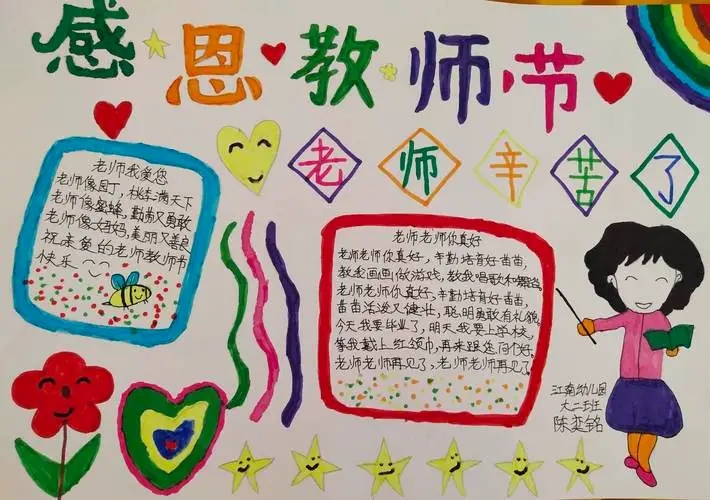 感恩教师节
老师辛苦了
老师我爱您
老师像园丁，桃李满天下
老师像蜜蜂，勤劳又勇敢
老师像妈妈，美丽又善良
祝亲爱的老师教师节
快乐
老师老师你真好
老师老师你真好，辛勤培育好苗苗，
教我画画做游戏，教我唱歌和舞蹈。
老师老师你真好，辛勤培育好苗苗，
苗苗活泼又健壮，聪明勇敢有礼貌。
今天我要毕业了，明天我要上学校，
等我戴上红领巾，再来跟您问个好。
老师老师再见了，老师老师再见了
江南幼儿园
大二班
陈奕铭